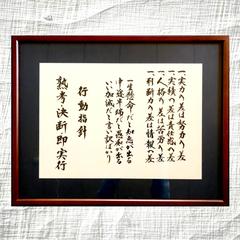 一、実力の差は努力の差
一、実績の差は責任感の差
一、人格の差は苦労の差
一、判断力の差は情報の差
一生懸命だと知恵が出る
中途半端だと愚痴が出る
いい加減だと言い訳ばかり
行動指針
熟考・決断・即実行